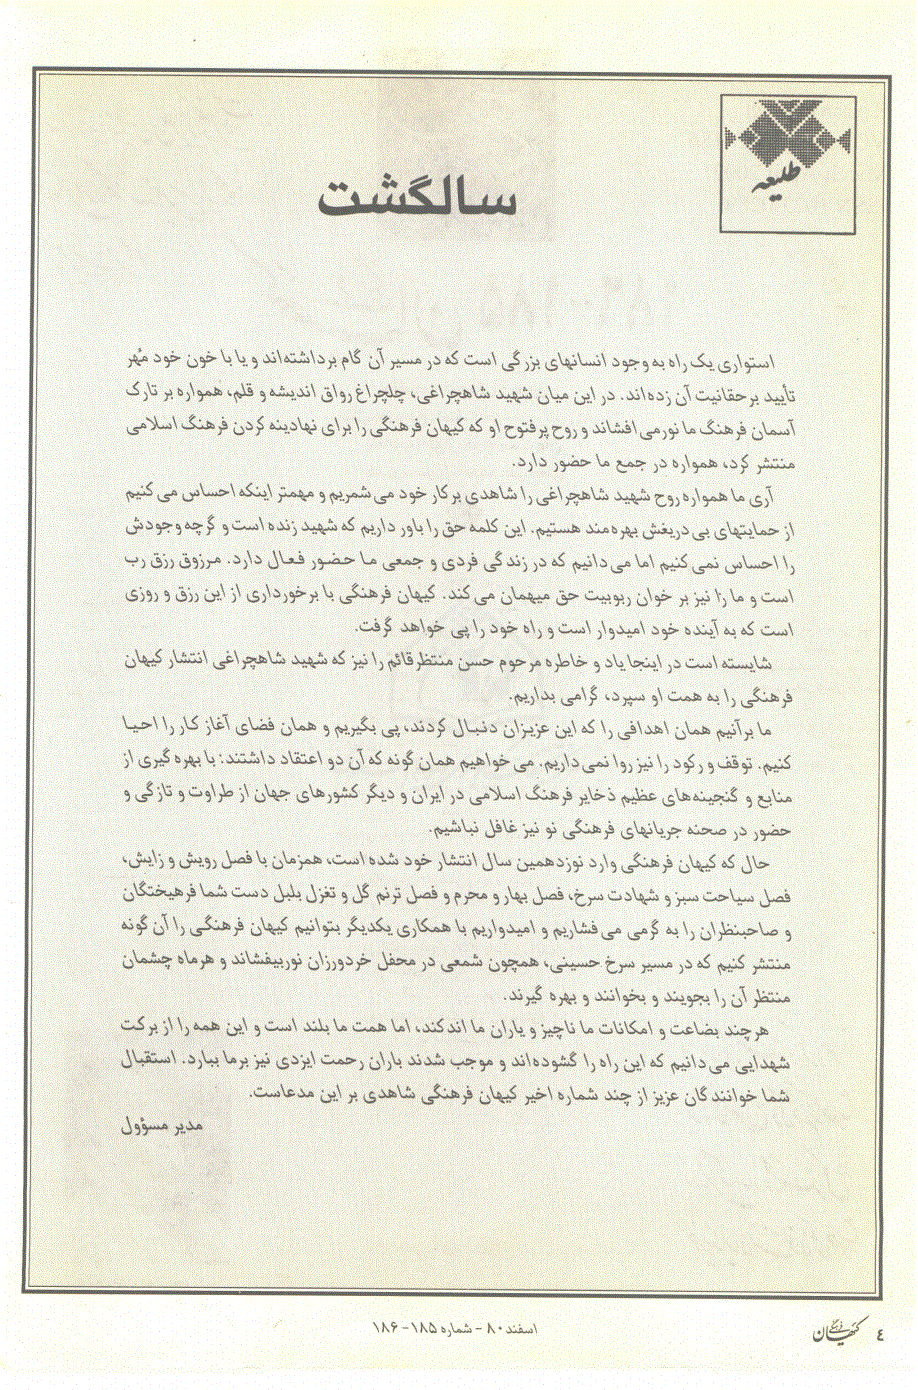 طلیعه
سالگشت
استواری یک راه به وجود انسانهای بزرگی است که در مسیر آن گام برداشته‌اند و یا با خون خود مُهر
تأیید بر حقانیت آن زده‌اند. در این میان شهید شاهچراغی، چلچراغ رواق اندیشه و قلم، همواره بر تارک
آسمان فرهنگ ما نور می‌افشاند و روح پرفتوح او که کیهان فرهنگی را برای نهادینه کردن فرهنگ اسلامی
منتشر کرد، همواره در جمع ما حضور دارد.
آری ما همواره روح شهید شاهچراغی را شاهدی بر کار خود می‌شمریم و مهمتر اینکه احساس می‌کنیم
از حمایتهای بی‌دریغش بهره‌مند هستیم. این کلمه حق را باور داریم که شهید زنده است و گرچه وجودش
را احساس نمی‌کنیم اما می‌دانیم که در زندگی فردی و جمعی ما حضور فعال دارد. مرزوق رزق رب
است و ما را نیز بر خوان ربوبیت حق میهمان می‌کند. کیهان فرهنگی با برخورداری از این رزق و روزی
است که به آینده خود امیدوار است و راه خود را پی خواهد گرفت.
شایسته است در اینجا یاد و خاطره مرحوم حسن منتظرقائم را نیز که شهید شاهچراغی انتشار کیهان
فرهنگی را به همت او سپرد، گرامی بداریم.
ما برآنیم همان اهدافی را که این عزیزان دنبال کردند، پی بگیریم و همان فضای آغاز کار را احیا
کنیم. توقف و رکود را نیز روا نمی‌داریم. می‌خواهیم همان گونه که آن دو اعتقاد داشتند: با بهره‌گیری از
منابع و گنجینه‌های عظیم ذخایر فرهنگ اسلامی در ایران و دیگر کشورهای جهان از طراوت و تازگی و
حضور در صحنه جریانهای فرهنگی نو نیز غافل نباشیم.
حال که کیهان فرهنگی وارد نوزدهمین سال انتشار خود شده است، همزمان با فصل رویش و زایش،
فصل سیاحت سبز و شهادت سرخ، فصل بهار و محرم و فصل ترنم گل و تغزل بلبل دست شما فرهیختگان
و صاحبنظران را به گرمی می‌فشاریم و امیدواریم با همکاری یکدیگر بتوانیم کیهان فرهنگی را آن گونه
منتشر کنیم که در مسیر سرخ حسینی، همچون شمعی در محفل خردورزان نور بیفشاند و هر ماه چشمان
منتظر آن را بجویند و بخوانند و بهره گیرند.
هر چند بضاعت و امکانات ما ناچیز و یاران ما اندکند، اما همت ما بلند است و این همه را از برکت
شهدایی می‌دانیم که این راه را گشوده‌اند و موجب شدند باران رحمت ایزدی نیز بر ما ببارد. استقبال
شما خوانندگان عزیز از چند شماره اخیر کیهان فرهنگی شاهدی بر این مدعاست.
مدیر مسؤول
٤ کیهان فرهنگی
اسفند ۸۰ - شماره ۱۸۵ - ۱۸۶